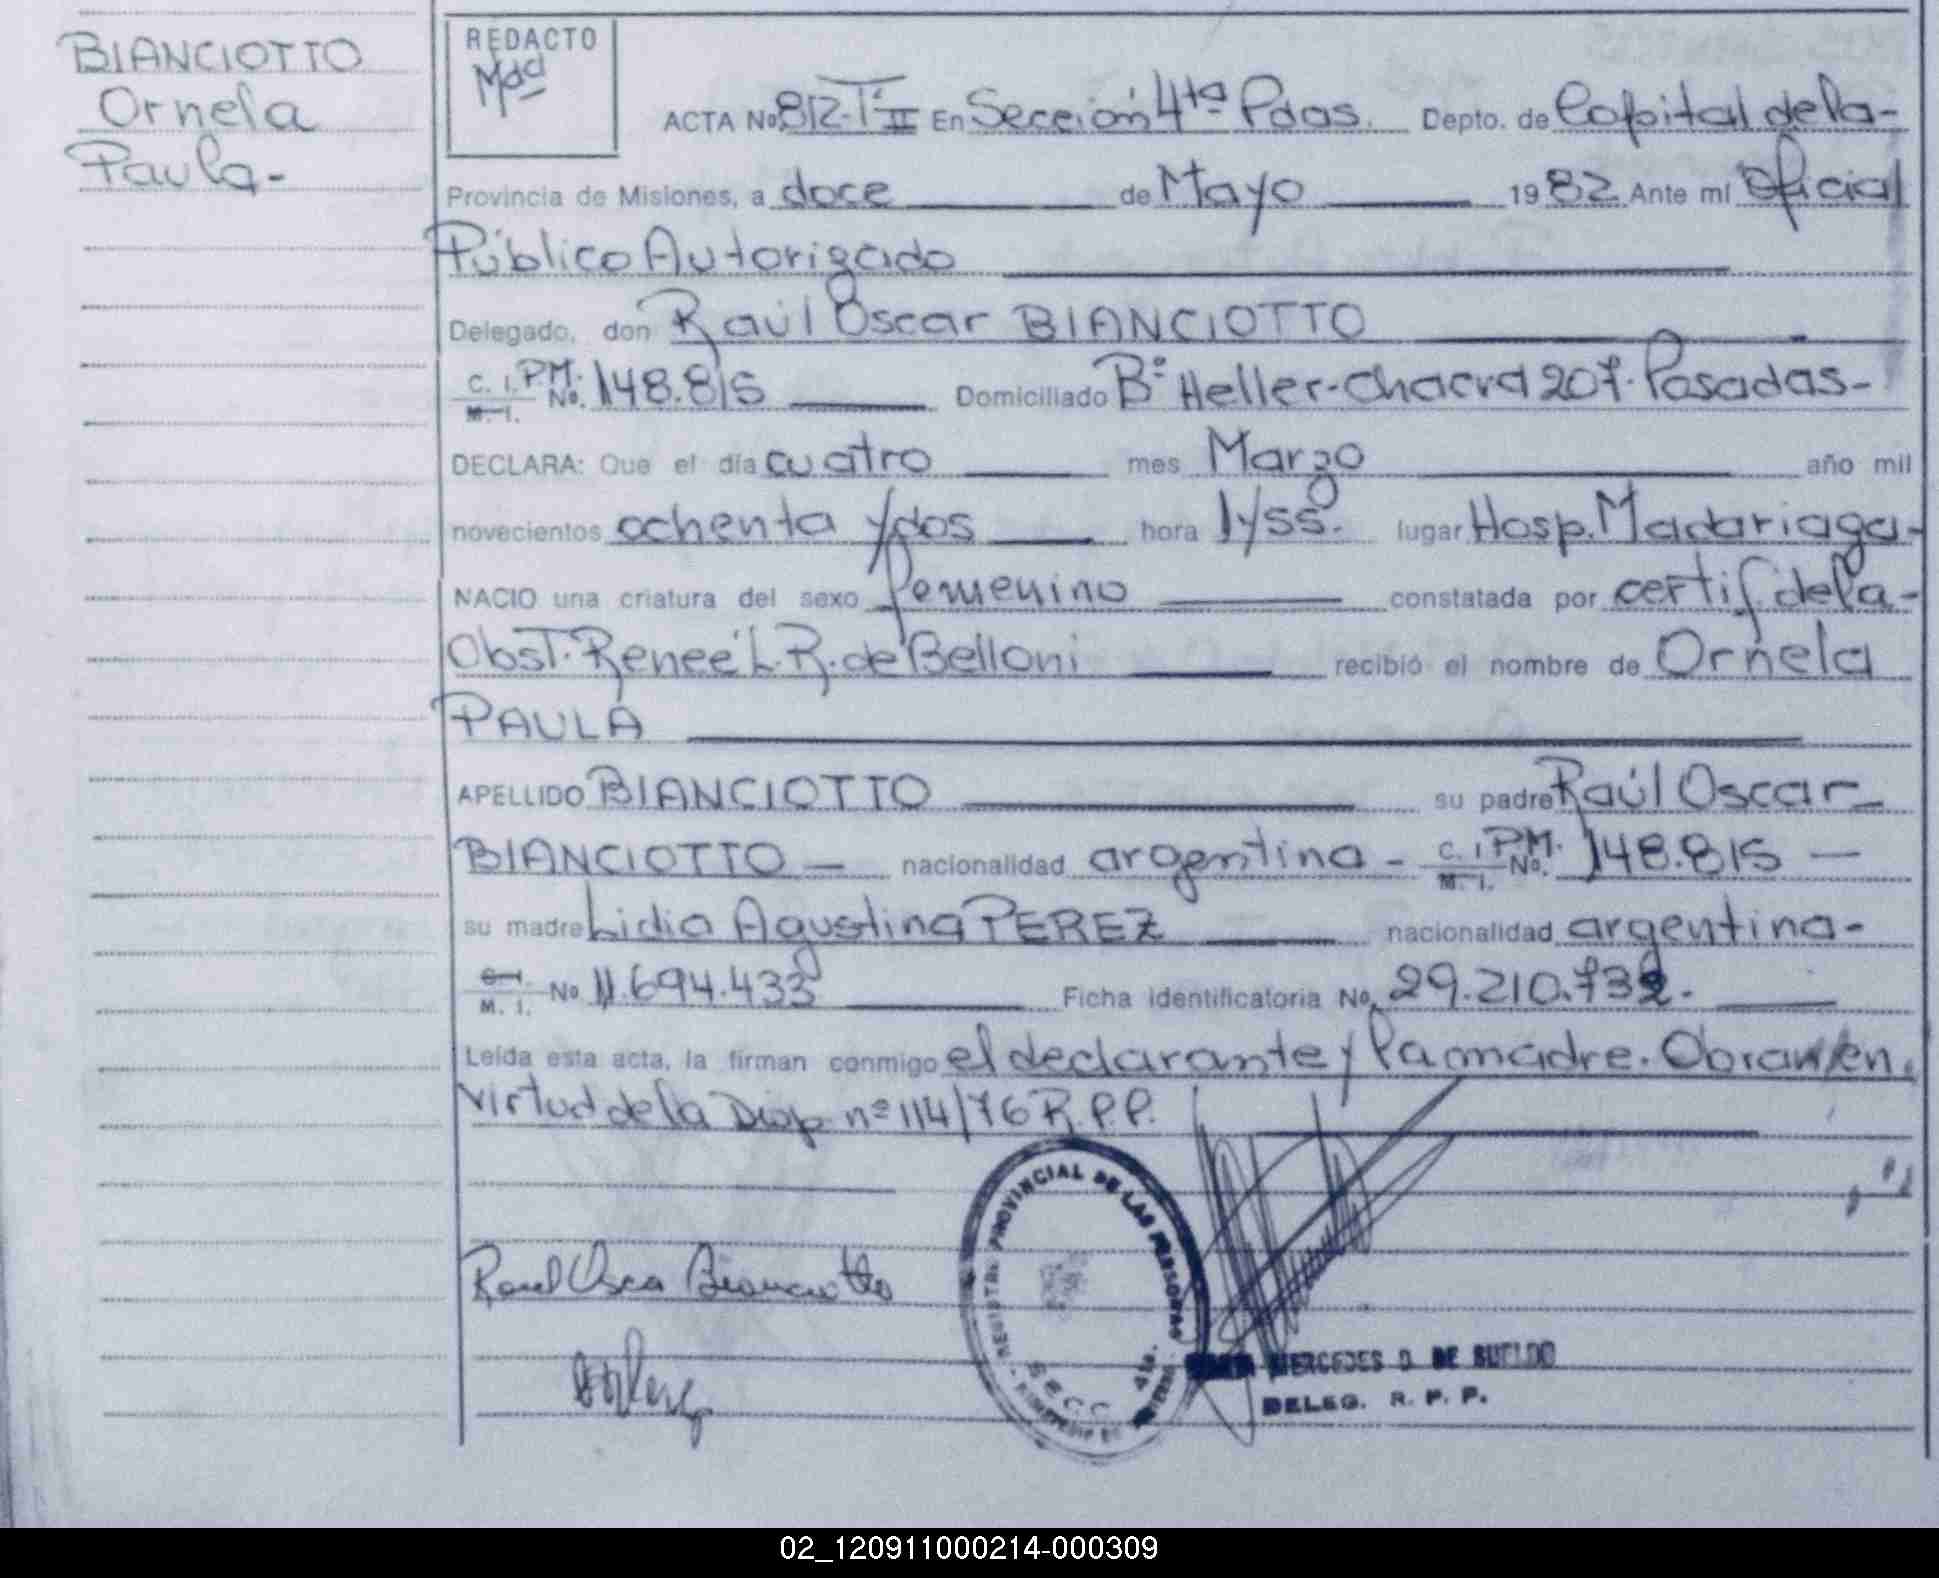 BIANCIOTTO
Ornela
Paula-
REDACTO
ACTA No 812-Tº II En Sección 4ta Pdas. Depto. de Capital de la-
Provincia de Misiones, a doce de Mayo 1982 Ante mí Oficial
Público Autorizado
Delegado, don Raúl Oscar BIANCIOTTO
C. I. P.M. M. I. No. 148.815 Domiciliado Bº Heller-Chacra 207-Posadas-
DECLARA: Que el día cuatro mes Marzo año mil
novecientos ochenta y dos hora 1y55. lugar Hosp. Madariaga-
NACIO una criatura del sexo femenino constatada por certif. de la-
Obst. Reneé L. R. de Belloni recibió el nombre de Ornela
PAULA
APELLIDO BIANCIOTTO su padre Raúl Oscar
BIANCIOTTO - nacionalidad argentina - C. I. P.M. M. I. No. 148.815 -
su madre Lidia Agustina PEREZ nacionalidad argentina-
C. I. M. I. No 11.694.433 Ficha identificatoria No. 29.210.732.
Leída esta acta, la firman conmigo el declarante y la madre. Obran en
virtud de la Disp. nº 114/76 R.P.P.
REGISTRO PROVINCIAL DE LAS PERSONAS
SECC 4ta.
Raul Osca Bianciotto
MERCEDES D. DE SUELDO
DELEG. R. P. P.
02_120911000214-000309